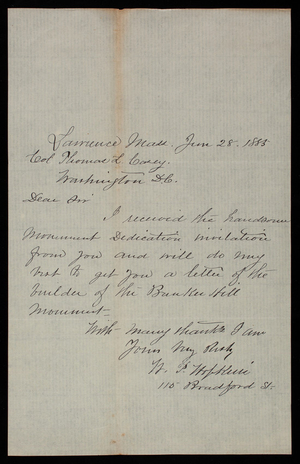 Lawrence Mass. Jan 28. 1885
Col Thomas L. Casey.
Washington D.C.
Dear Sir
I received the handsome
Monument Dedication invitation
from you and will do my
best to get you a letter of the
builder of the Bunker Hill
Monument.
With Many thanks I am
Yours Very Resty
W. S. Hopkins
110 Bradford St.